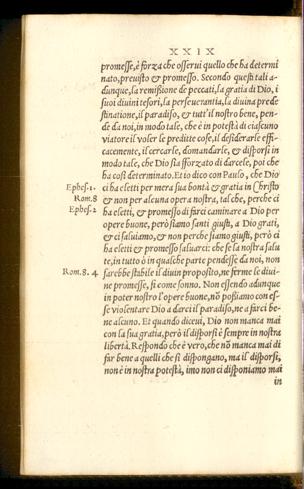 XXIX
promesse, è forza che osserui quello che ha determi
nato, preuisto & promesso. Secondo questi tali a-
dunque, la remißione de peccati, la gratia di Dio, i
suoi diuini tesori, la perseuerantia, la diuina prede
stinatione, il paradiso, & tutt'il nostro bene, pen-
de da noi, in modo tale, che è in potestà di ciascuno
uiatore il uoler le preditte cose, il desiderarle effi-
cacemente, il cercarle, domandarle, & disporsi in
modo tale, che Dio sia sforzato di darcele, poi che
ha cosi determinato. Et io dico con Paulo, che Dio
Ephes.1. ci ha eletti per mera sua bontà & gratia in Christo
Rom.8 & non per alcuna opera nostra, talche, perche ci
Ephes.2 ha eletti, & promesso di farci caminare a Dio per
opere buone, però siamo santi giusti, a Dio grati,
& ci saluiamo, & non perche siamo giusti, però ci
ha eletti & promesso saluarci: che se la nostra salu
te, in tutto ò in qualche parte pendesse da noi, non
Rom.8. 4 sarebbe stabile il diuin proposito, ne ferme le diui-
ne promesse, si come sonno. Non essendo adunque
in poter nostro l'opere buone, nõ poßiamo con es-
se uiolentare Dio a darci il paradiso, ne a farci be-
ne alcuno. Et quando diceui, Dio non manca mai
con la sua gratia, però il disporsi è sempre in nostra
libertà. Respondo che è uero, che nõ manca mai di
far bene a quelli che si dispongano, ma il disporsi,
non è in nostra potestà, imo non ci disponiamo mai
in